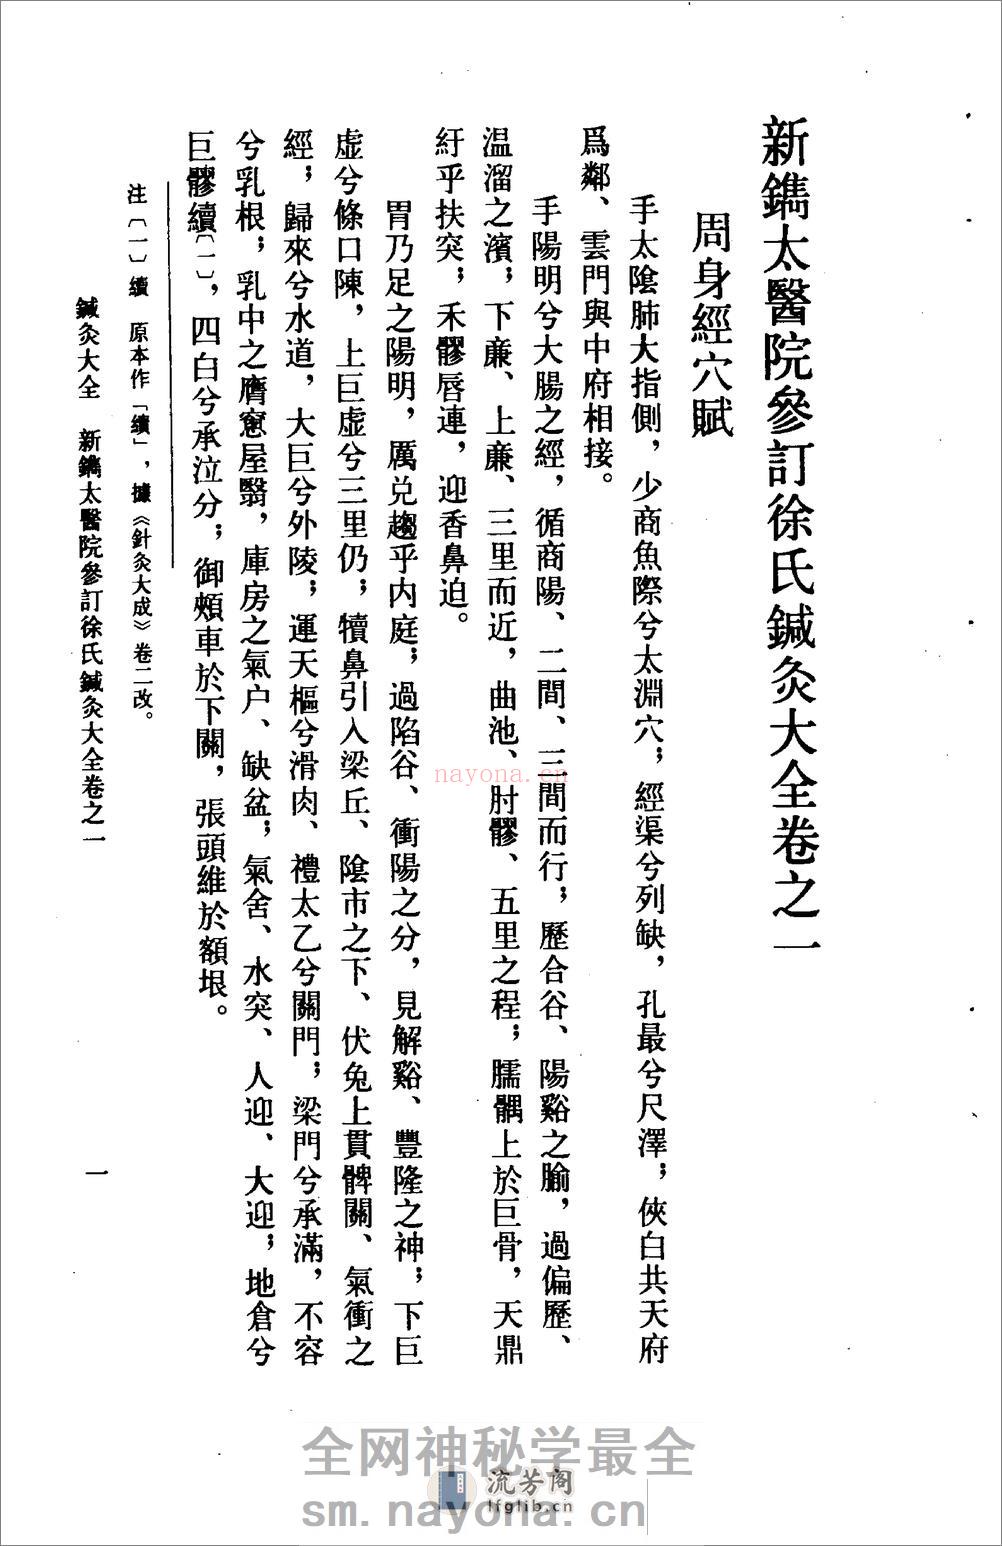 新鐫太醫院參訂徐氏鍼灸大全卷之一
周身經穴賦
手太陰肺大指側，少商魚際兮太淵穴；經渠兮列缺，孔最兮尺澤；俠白共天府
爲鄰、雲門與中府相接。
手陽明兮大腸之經，循商陽、二間、三間而行；歷合谷、陽谿之腧，過偏歷、
温溜之濱；下廉、上廉、三里而近，曲池、肘髎、五里之程；臑髃上於巨骨，天鼎
紆乎扶突；禾髎唇連，迎香鼻迫。
胃乃足之陽明，厲兑趨乎内庭；過陷谷、衝陽之分，見解谿、豐隆之神；下巨
虚兮條口陳，上巨虚兮三里仍；犢鼻引入梁丘、陰市之下、伏兔上貫髀關、氣衝之
經；歸來兮水道，大巨兮外陵；運天樞兮滑肉、禮太乙兮關門；梁門兮承滿，不容
兮乳根；乳中之膺窻屋翳，庫房之氣户、缺盆；氣舍、水突、人迎、大迎；地倉兮
巨髎續〔一〕，四白兮承泣分；御頰車於下關，張頭維於額垠。
注〔一〕續　原本作「績」，據《針灸大成》卷二改。
鍼灸大全　新鐫太醫院參訂徐氏鍼灸大全卷之一
一
nayona.cn
全网神秘学最全
流芳阁
lfglib.cn
sm.nayona.cn